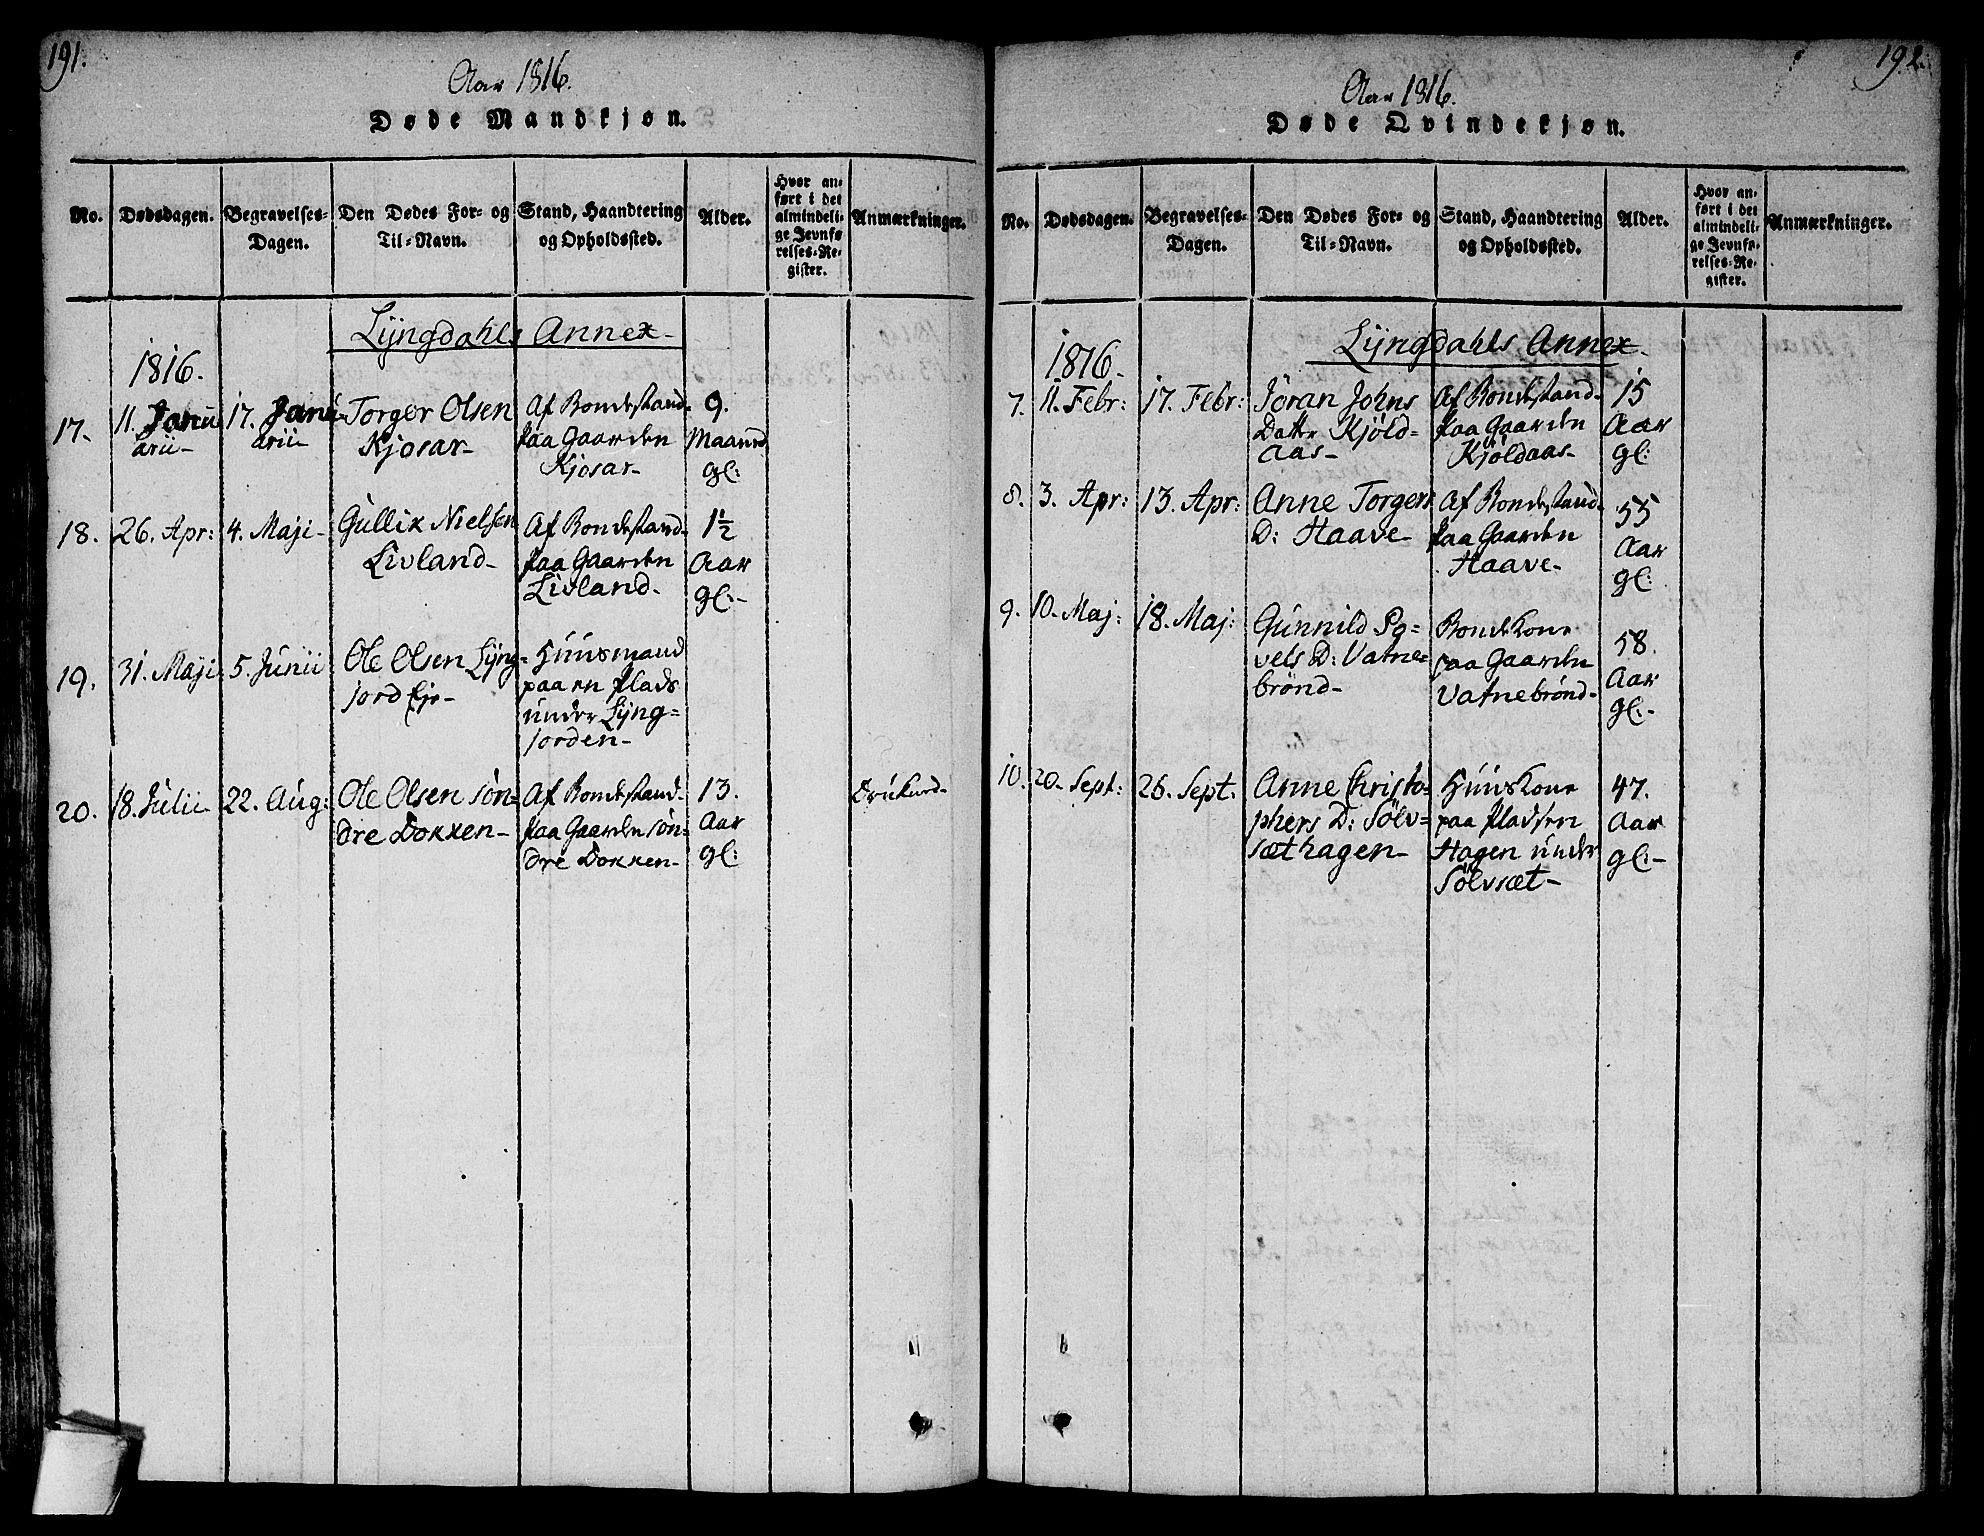 191.
Aar 1816.
Døde Mandkjøn.
No.
Dødsdagen.
Begravelses-
Dagen.
Den Dødes For- og
Til-Navn.
Stand, Haandtering
og Opholdssted.
Alder.
Hvor an-
ført i det
almindeli-
ge Jevnfø-
relses-Re-
gister.
Anmærkninger.
Lyngdahls Annex-
1816.
17.
11. Janu-
arii-
17. Janu-
arii-
Torger Olsen
Kjosar-
Af Bondestand-
paa Gaarden
Kjosar-
9.
Maaned
gl:
18.
26. Apr:
4. Maji-
Gullik Nielsen
Livland-
Af Bondestand-
paa Gaarden
Livland-
1½
Aar
gl:-
19.
31. Maji
5. Junii
Ole Olsen Lyng-
jord
Huusmand
paa en Plads
under Lyng-
jorden-
20.
18. Julii-
22. Aug:
Ole Olsen søn-
dre Dokken-
Af Bondestand-
paa Gaarden søn-
dre Dokken-
13.
Aar
gl:
Drukned-
192.
Aar 1816.
Døde Qvindekjøn.
No.
Dødsdagen.
Begravelses-
Dagen.
Den Dødes For- og
Til-Navn.
Stand, Haandtering
og Opholdssted.
Alder.
Hvor an-
ført i det
almindeli-
ge Jevnfø-
relses-Re-
gister.
Anmærkninger.
Lyngdahls Annex.
1816.
7.
11. Febr:
17. Febr:
Jöran Johns
Datter Kjöld-
aas-
Af Bondestand-
paa Gaarden
Kjöldaas-
15
Aar
gl:
8.
3. Apr:
13. Apr:
Anne Torgers
D: Haave-
Af Bondestand-
paa Gaarden
Haave-
55
Aar
gl:
9.
10. Maj:
18. Maj:
Gunnild Po-
vels D: Vatne-
brönd-
Bondekone
paa Gaarden
Vatnebrönd-
58.
Aar
gl:-
10.
20. Sept:
26. Sept.
Anne Christo-
phers D: Sölv-
sæthagen-
Huuskone
paa Pladsen
Hagen under
Sölvsæt-
47.
Aar
gl:-